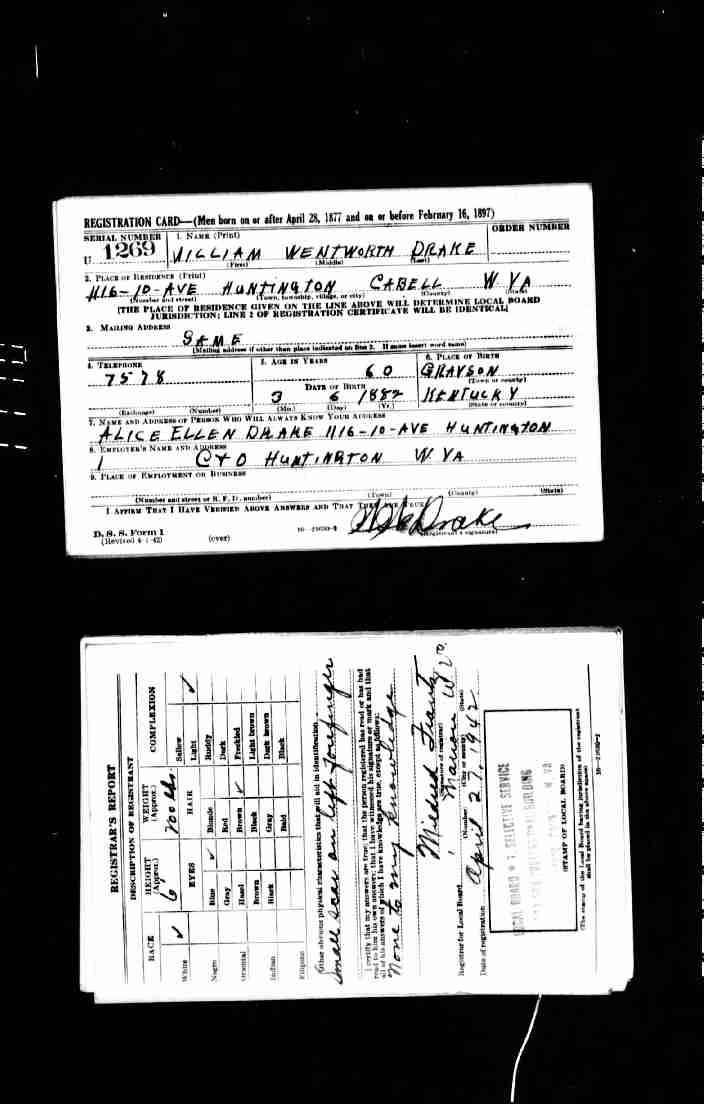 REGISTRATION CARD—(Men born on or after April 28, 1877 and on or before February 16, 1897)
SERIAL NUMBER 1. NAME (Print) ORDER NUMBER
U 1269 WILLIAM WENTWORTH DRAKE
(First) (Middle) (Last)
2. PLACE OF RESIDENCE (Print)
1116-10-AVE HUNTINGTON CABELL W VA
(Number and street) (Town, township, village, or city) (County) (State)
[THE PLACE OF RESIDENCE GIVEN ON THE LINE ABOVE WILL DETERMINE LOCAL BOARD
JURISDICTION; LINE 2 OF REGISTRATION CERTIFICATE WILL BE IDENTICAL]
3. MAILING ADDRESS
SAME
[Mailing address if other than place indicated on line 2. If same insert word same]
4. TELEPHONE 5. AGE IN YEARS 6. PLACE OF BIRTH
7578 60 GRAYSON
DATE OF BIRTH (Town or county)
3 6 1882 KENTUCKY
(Exchange) (Number) (Mo.) (Day) (Yr.) (State or country)
7. NAME AND ADDRESS OF PERSON WHO WILL ALWAYS KNOW YOUR ADDRESS
ALICE ELLEN DRAKE 1116-10-AVE HUNTINGTON
8. EMPLOYER'S NAME AND ADDRESS
C+O HUNTINGTON W VA
9. PLACE OF EMPLOYMENT OR BUSINESS
(Number and street or R. F. D. number) (Town) (County) (State)
I AFFIRM THAT I HAVE VERIFIED ABOVE ANSWERS AND THAT THEY ARE TRUE.
Drake
D. S. S. Form 1 (Registrant's signature)
(Revised 4-1-42) (over) 16—21630-2
REGISTRAR'S REPORT
DESCRIPTION OF REGISTRANT
RACE HEIGHT (Approx.) WEIGHT (Approx.) COMPLEXION
6' 200 lbs.
EYES HAIR
White ✓ Blue ✓ Blonde Sallow
Light ✓
Negro Gray Red Ruddy
Hazel Brown ✓ Dark
Oriental Brown Black Freckled
Indian Black Gray Light brown
Filipino Bald Dark brown
Black
Other obvious physical characteristics that will aid in identification
Small scar on left forefinger
I certify that my answers are true; that the person registered has read or has had
read to him his own answers; that I have witnessed his signature or mark and that
all of his answers of which I have knowledge are true, except as follows:
None to my knowledge
Mildred Frantz
(Signature of registrar)
Registrar for Local Board Marion W Va.
(Number) (City or county) (State)
Date of registration April 27, 1942
LOCAL BOARD # 1 SELECTIVE SERVICE
BUILDING
W VA
(STAMP OF LOCAL BOARD)
(The stamp of the Local Board having jurisdiction of the registrant
shall be placed in the above space)
16—21630-2